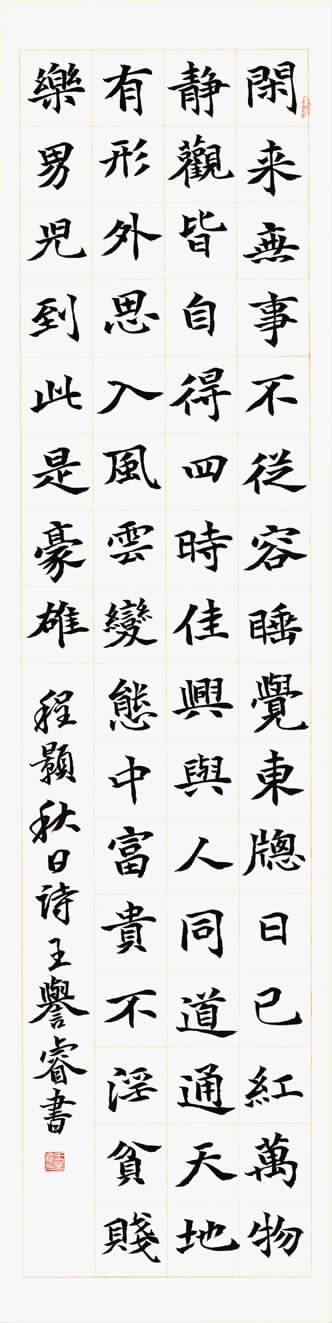 閑来無事不從容睡覺東牕日已紅萬物
静觀皆自得四時佳興與人同道通天地
有形外思入風雲變態中富貴不淫貧賤
樂男児到此是豪雄
程顥秋日诗王譽睿書